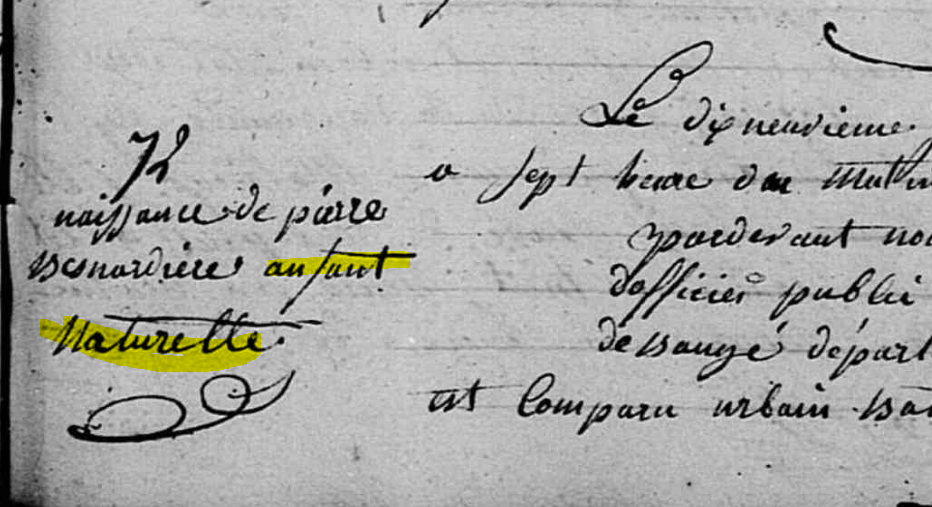 naissance de pierre
Besnardiere anfant
Naturelle.
Le dixneuvieme
a sept heure du Matin
pardevant nou
dofficier public
de Baugé départ
est Comparu urbain Ba